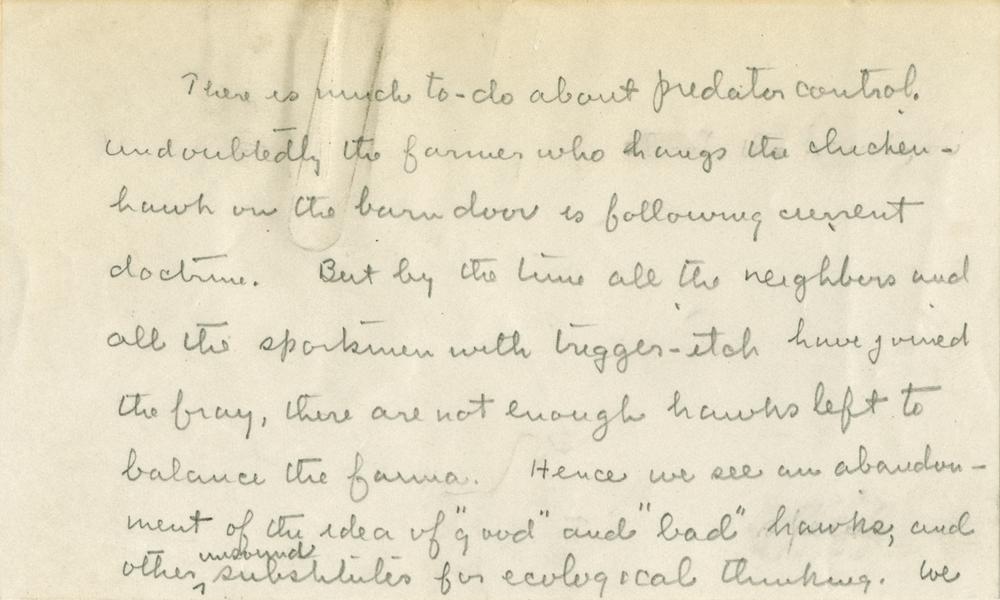 There is much to-do about predator control.
Undoubtedly the farmer who hangs the chicken-
hawk on the barn door is following current
doctrine. But by the time all the neighbors and
all the sportsmen with trigger-itch have joined
the fray, there are not enough hawks left to
balance the fauna. Hence we see an abandon-
ment of the idea of "good" and "bad" hawks, and
unsound
other substitutes for ecological thinking. We